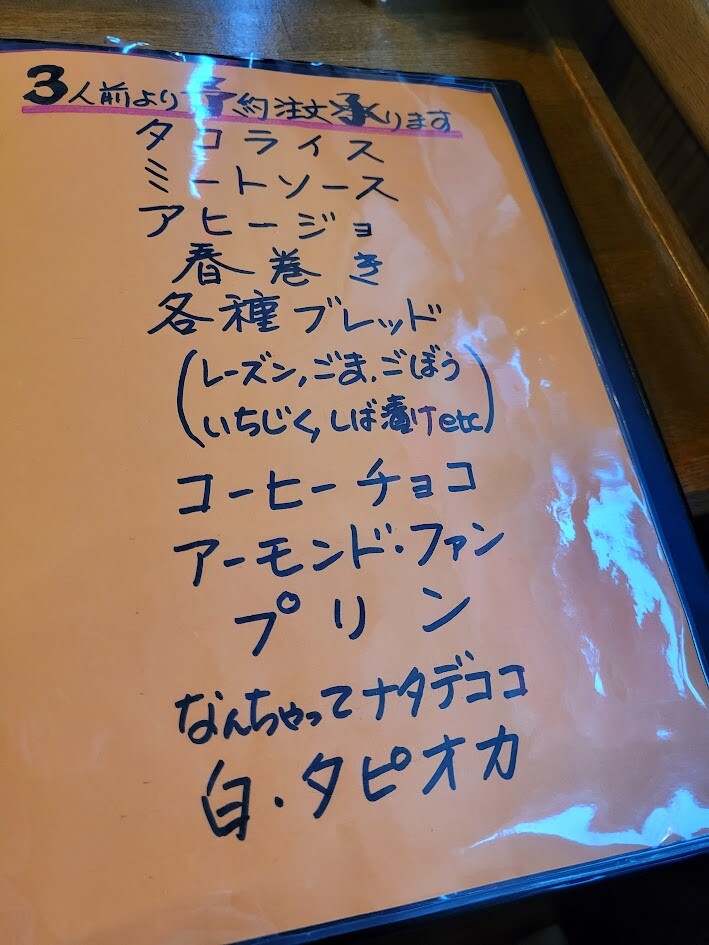 3人前より予約注文承ります
タコライス
ミートソース
アヒージョ
春巻き
各種ブレッド
(レーズン,ごま,ごぼう
いちじく,しば漬けetc)
コーヒーチョコ
アーモンド・ファン
プリン
なんちゃってナタデココ
白・タピオカ